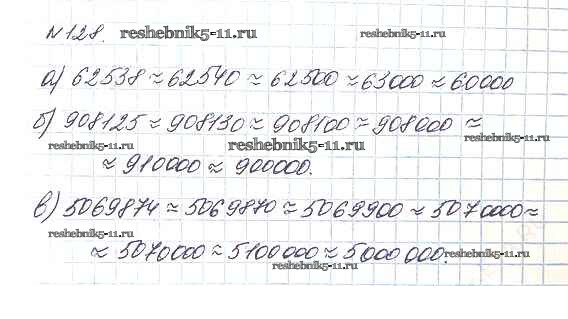 №128. reshebnik5-11.ru reshebnik5-11.ru
а) 62538 ≈ 62540 ≈ 62500 ≈ 63000 ≈ 60000
б) 908125 ≈ 908130 ≈ 908100 ≈ 908000 ≈
reshebnik5-11.ru reshebnik5-11.ru reshebnik5-11.ru
≈ 910000 ≈ 900000.
в) 5069874 ≈ 5069870 ≈ 5069900 ≈ 5070000 ≈
reshebnik5-11.ru
≈ 5070000 ≈ 5100000 ≈ 5000000. reshebnik5-11.ru
reshebnik5-11.ru